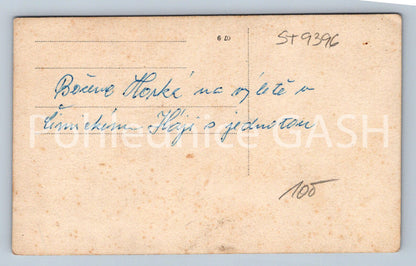 6 D
ST9396
Božena Horká na výletě v
Čimickém Háji s jednotou
Pohlednice GASH
100